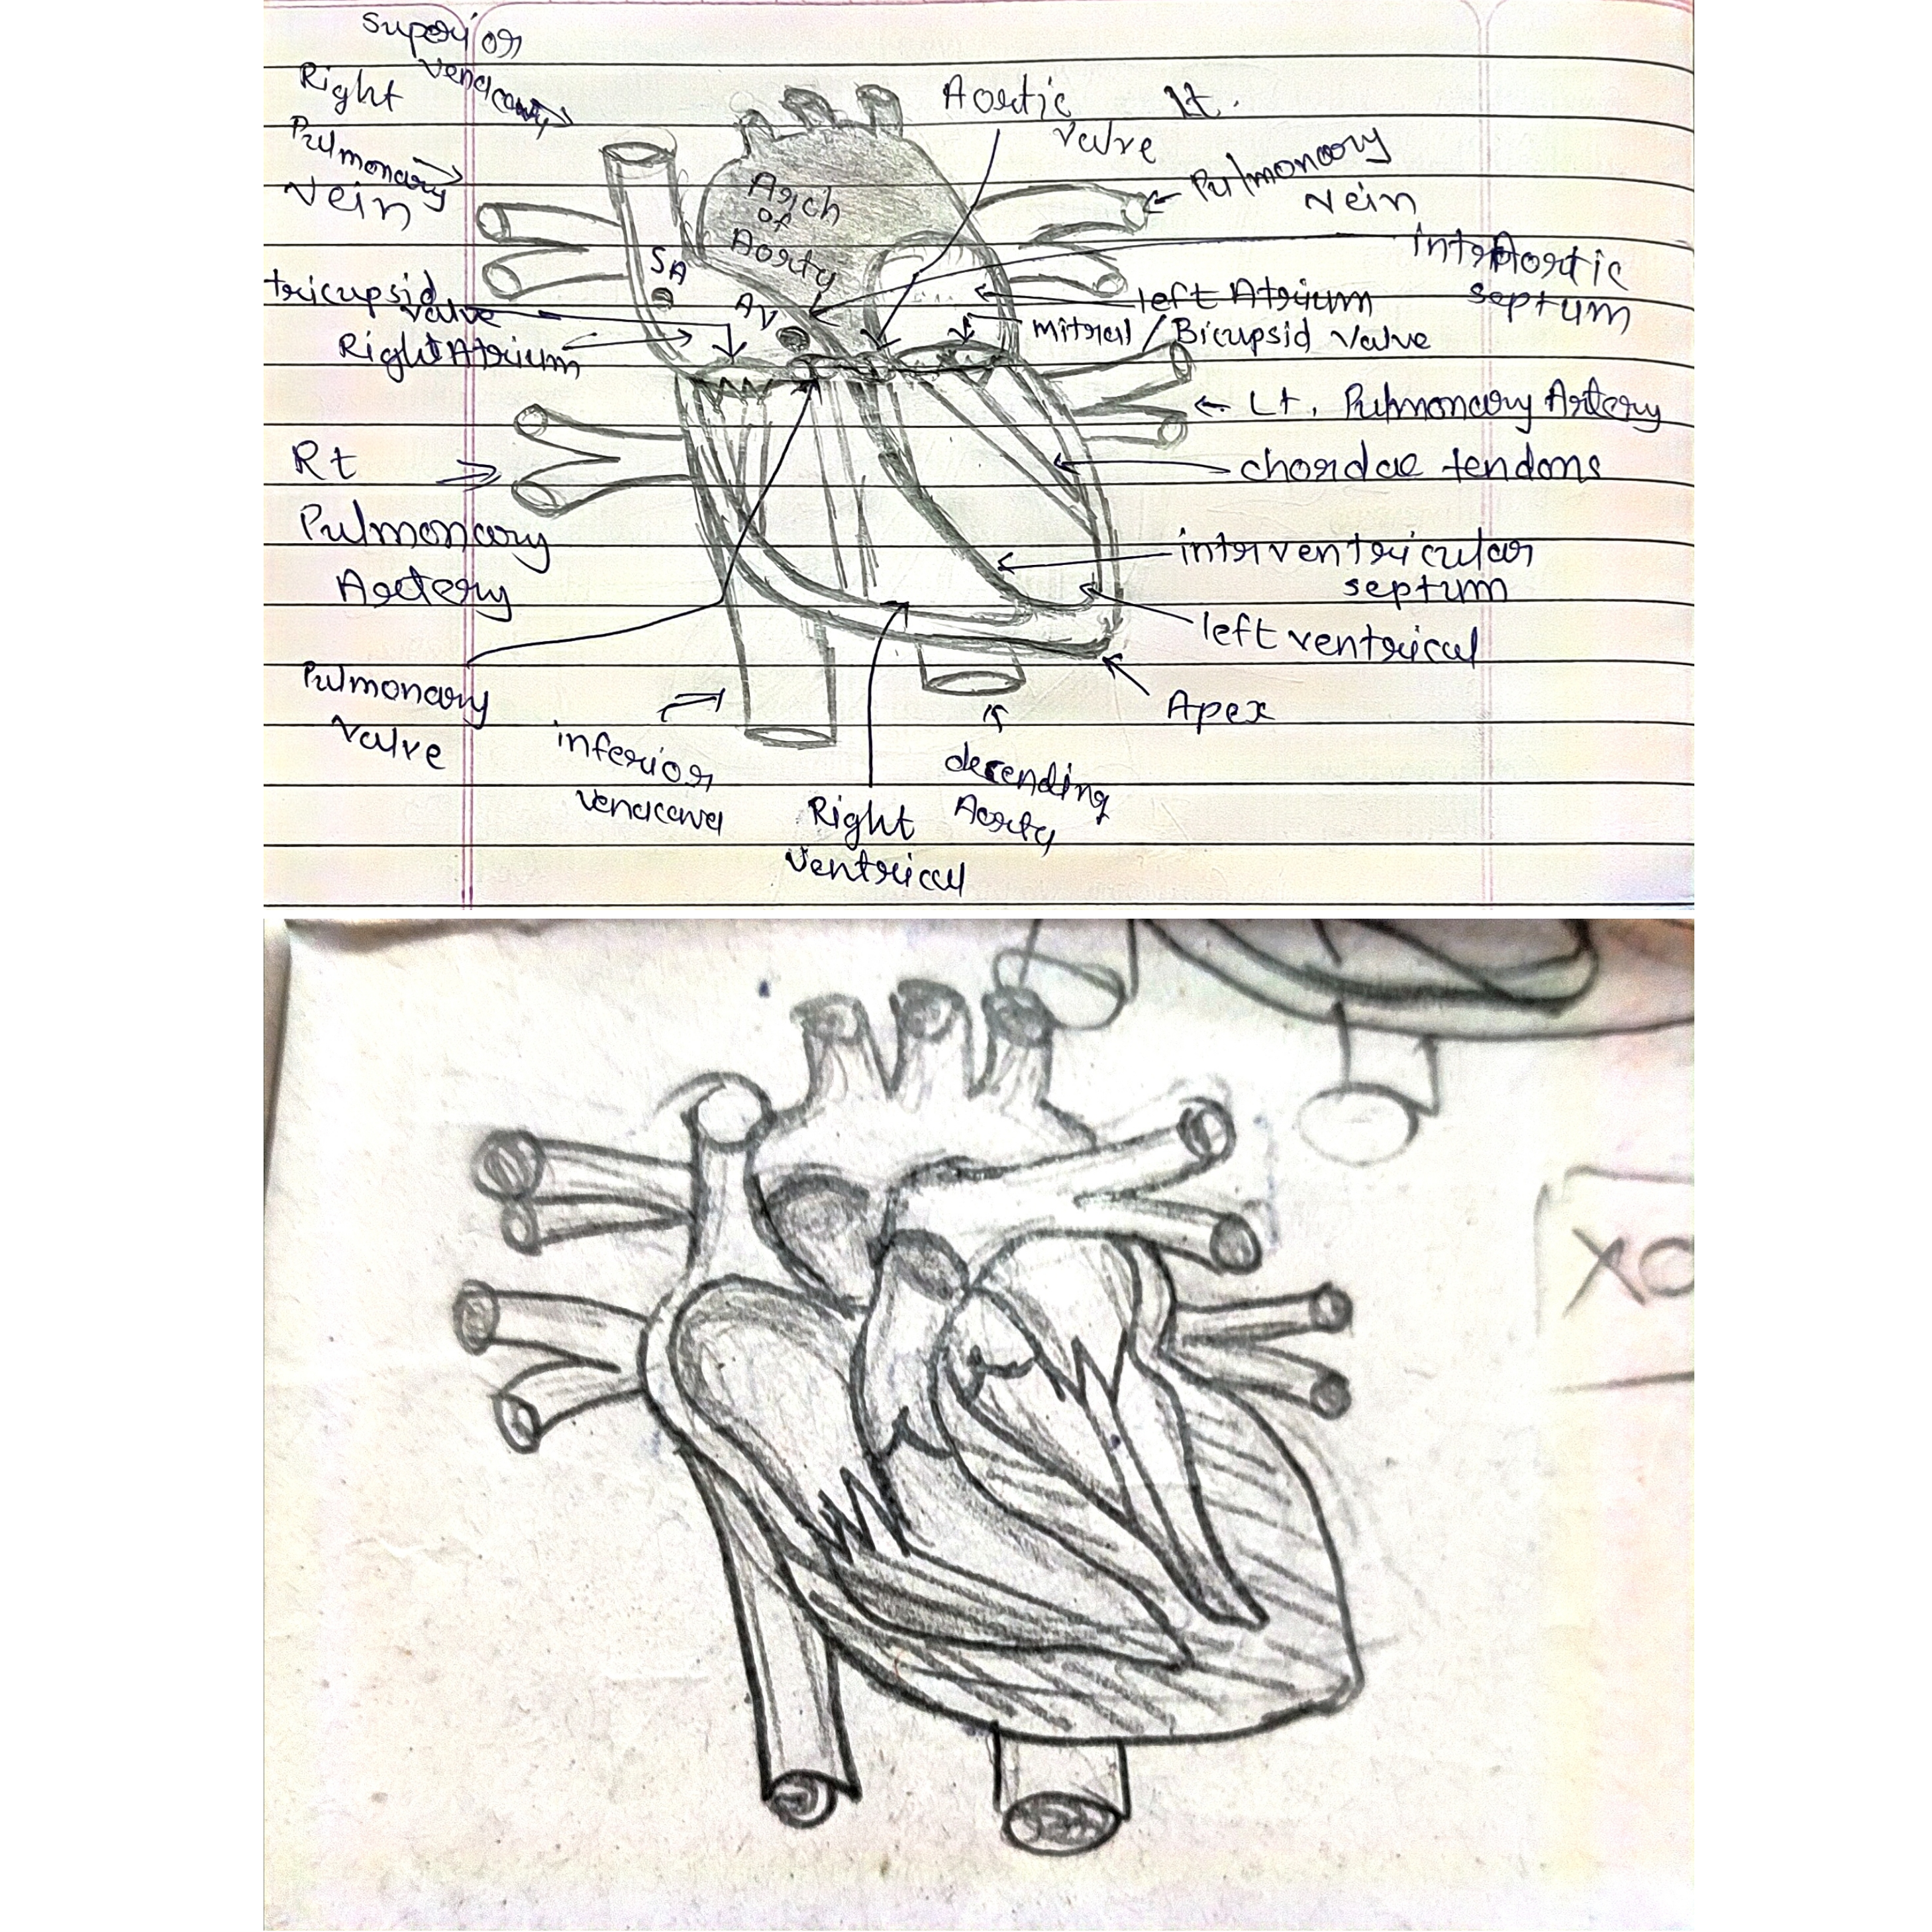 Superior
venacava
Right
Pulmonary
vein
Aortic
valve
Lt.
Pulmonary
vein
Arch
of
Aorty
SA
AV
interAortic
septum
tricupsid
valve
Right Atrium
left Atrium
mitral / Bicupsid valve
Lt. Pulmonary Artery
chordae tendons
Rt
Pulmonary
Artery
interventricular
septum
left ventrical
Apex
Pulmonary
valve
inferior
venacava
Right
ventrical
decending
Aorty
XO